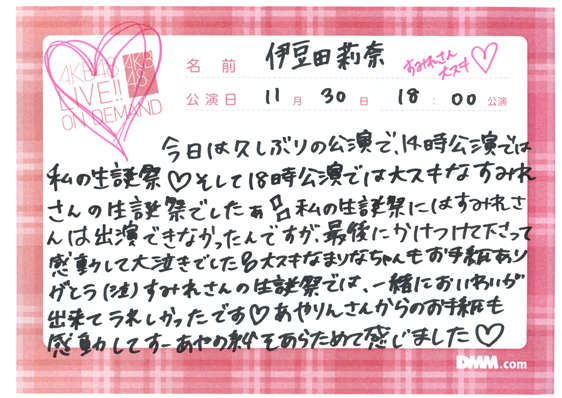 AKB48
LIVE!!
ON DEMAND
AKB
48
名前 伊豆田莉奈
すみれさん
大スキ♡
公演日 11月30日 18:00公演
今日は久しぶりの公演で、14時公演では
私の生誕祭♡そして18時公演では大スキなすみれ
さんの生誕祭でしたぁ 私の生誕祭にはすみれさ
んは出演できなかったんですが、最後にかけつけて下さって
感動して大泣きでした 大スキなまりなちゃんもお手紙あり
がとう(泣)すみれさんの生誕祭では、一緒においわいが
出来てうれしかったです♡あやりんさんからのお手紙も
感動してすーあやの絆をあらためて感じました♡
DMM.com